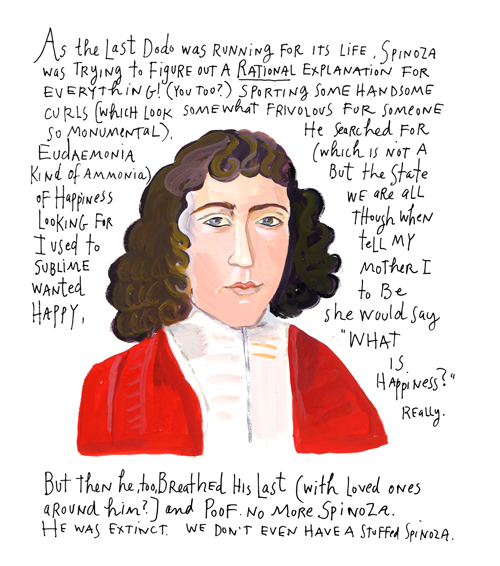 As the Last Dodo was running for its life, Spinoza
was trying to figure out a RATIONAL explanation for
everything! (You too?) Sporting some handsome
curls (which look somewhat frivolous for someone
so monumental). He searched for
Eudaemonia (which is not a
kind of Ammonia) But the State
of Happiness we are all
Looking for though when
I used to tell my
sublime mother I
wanted to Be
Happy, she would say
"What
is
Happiness?"
Really.
But then he, too, Breathed His Last (with Loved ones
around him?) and Poof. No more Spinoza.
He was extinct. We don't even have a stuffed Spinoza.